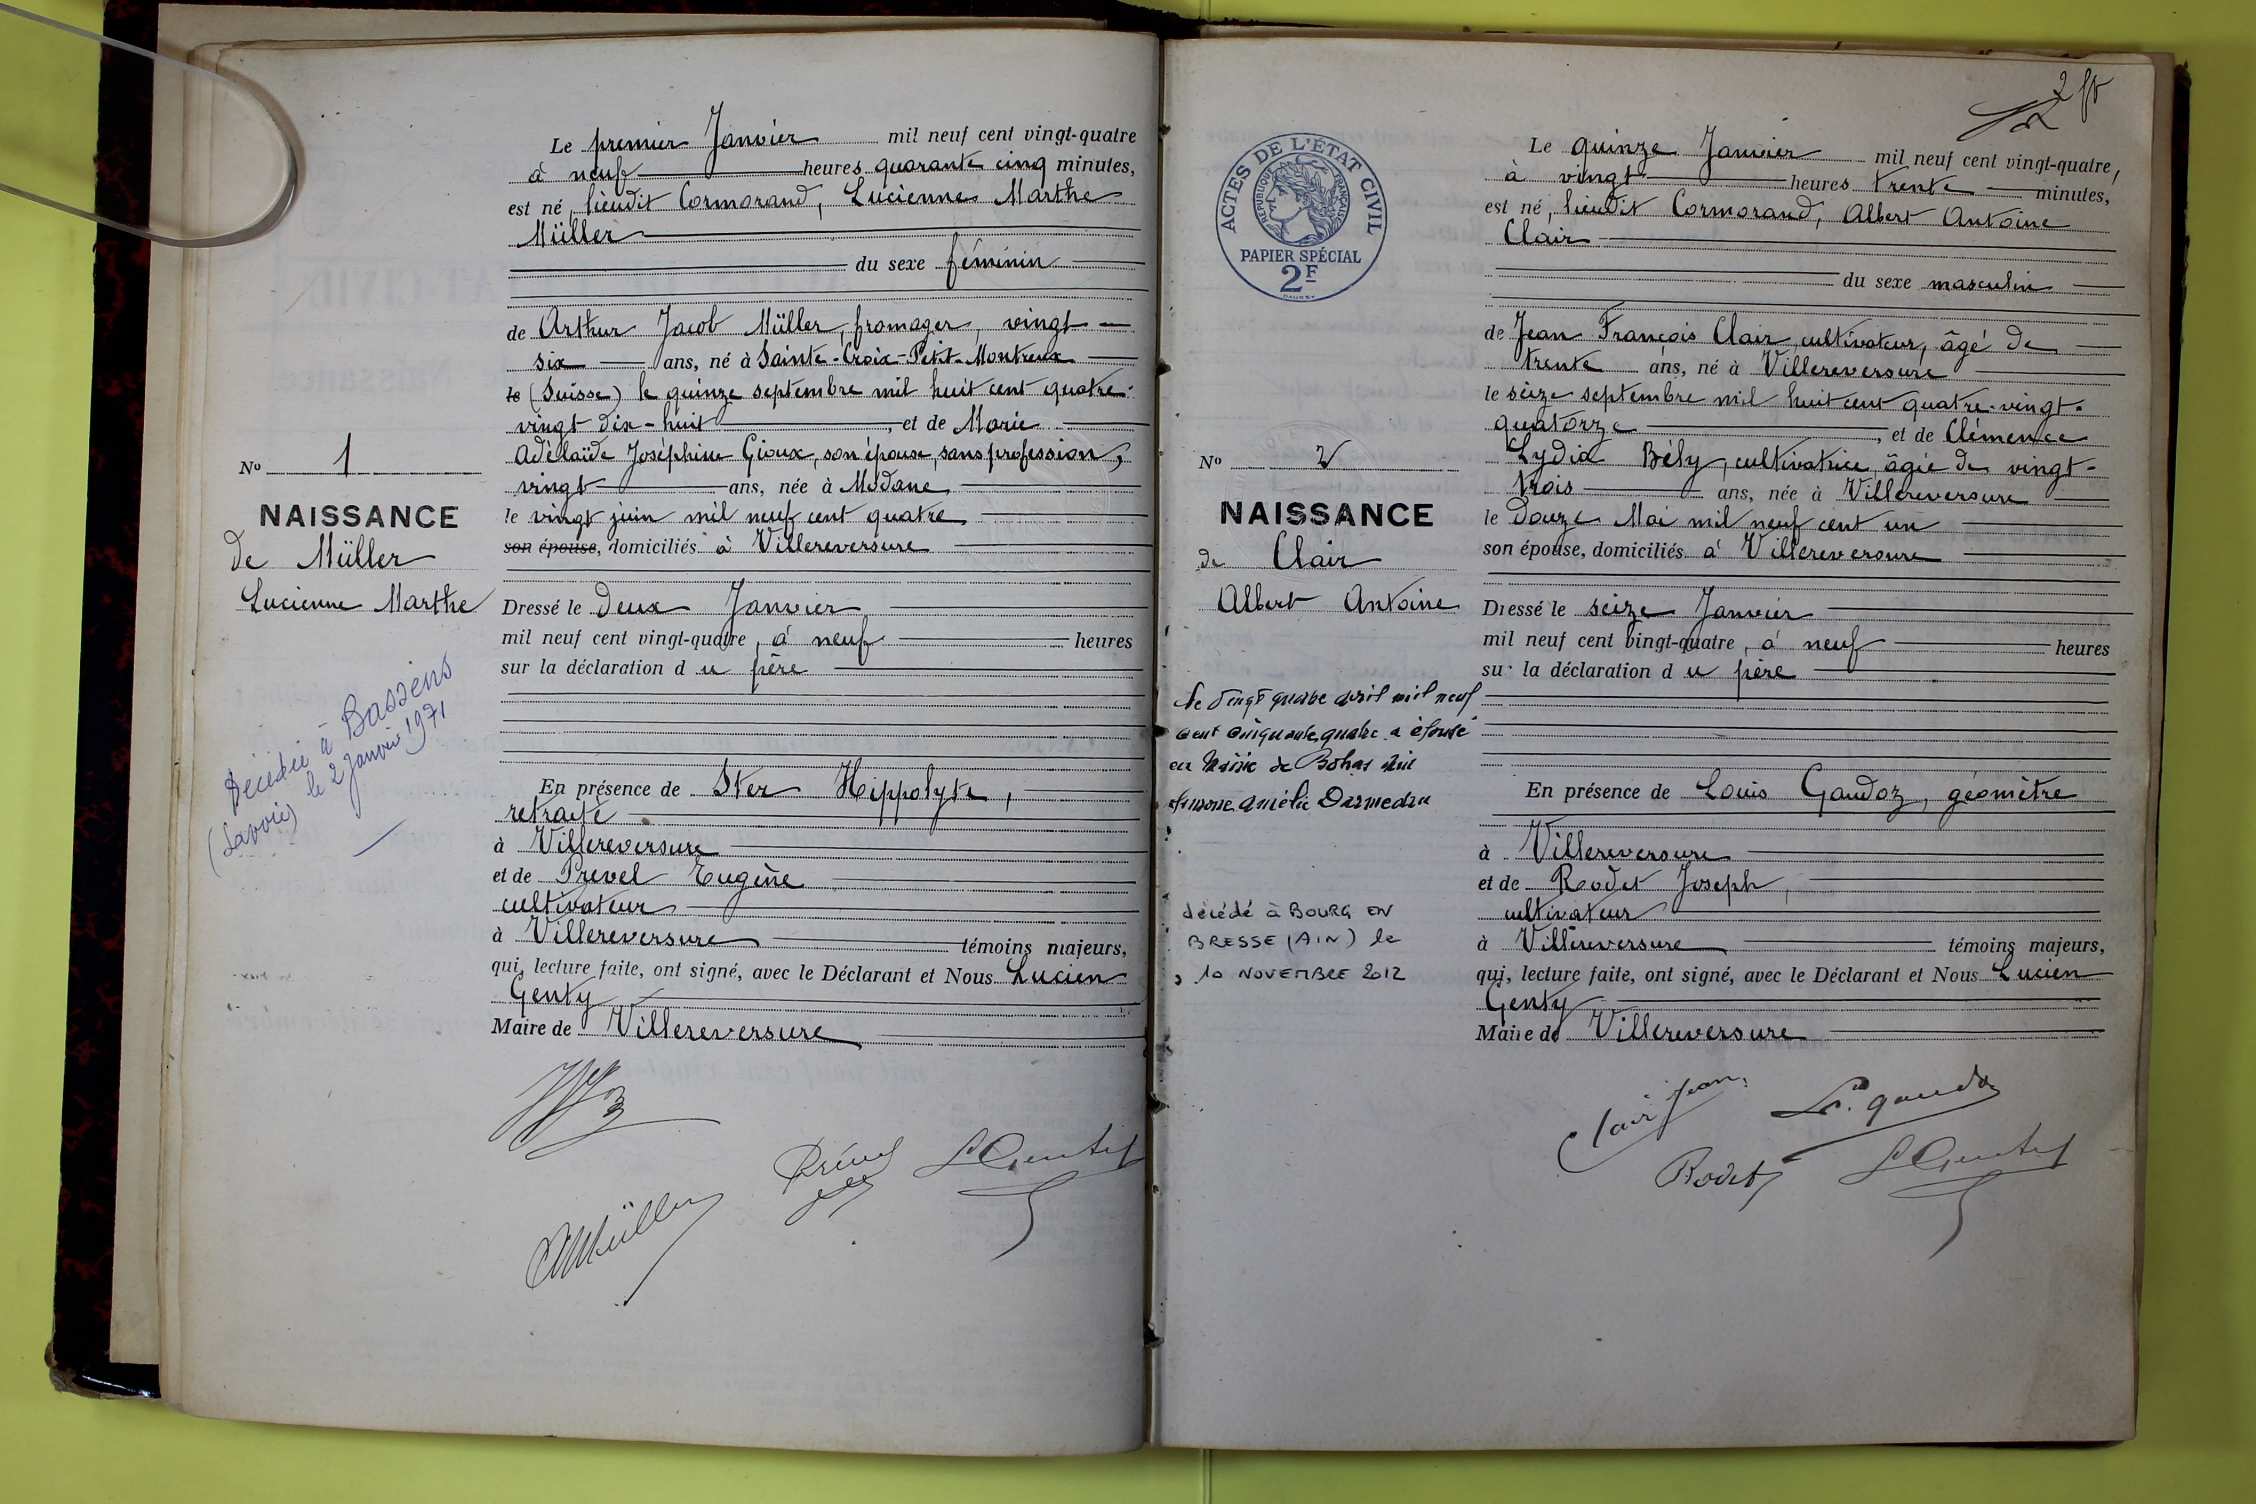 Le premier Janvier mil neuf cent vingt-quatre
à neuf heures quarante cinq minutes,
est né, lieudit Cormorand, Lucienne Marthe
Müller
du sexe féminin
de Arthur Jacob Müller, fromager, vingt
six ans, né à Sainte-Croix-Petit-Montreux
le (Suisse) le quinze septembre mil huit cent quatre-
vingt dix-huit, et de Marie
Adélaïde Joséphine Gioux, son épouse, sans profession,
vingt ans, née à Modane
le vingt juin mil neuf cent quatre
son épouse, domiciliés à Villereversure
Dressé le deux Janvier
mil neuf cent vingt-quatre, à neuf heures
sur la déclaration du père
En présence de Ster Hippolyte,
retraité
à Villereversure
et de Prevel Eugène
cultivateur
à Villereversure témoins majeurs,
qui, lecture faite, ont signé, avec le Déclarant et Nous Lucien
Genty
Maire de Villereversure
No 1
NAISSANCE
de Müller
Lucienne Marthe
Décédée à Bassens
(Savoie) le 2 Janvier 1971
AMüller
Prével
L Genty
2
ACTES DE L'ÉTAT CIVIL
RÉPUBLIQUE FRANÇAISE
PAPIER SPÉCIAL
2F
No 2
NAISSANCE
de Clair
Albert Antoine
Le vingt quatre avril mil neuf
cent cinquante quatre a épousé
en Mairie de Bohas
Simone Amélie
décédé à BOURG EN
BRESSE (AIN) le
10 NOVEMBRE 2012
Le quinze Janvier mil neuf cent vingt-quatre,
à vingt heures trente minutes,
est né, lieudit Cormorand, Albert Antoine
Clair
du sexe masculin
de Jean François Clair, cultivateur, âgé de
trente ans, né à Villereversure
le seize septembre mil huit cent quatre-vingt-
quatorze, et de Clémence
Lydia Bély, cultivatrice, âgée de vingt-
trois ans, née à Villereversure
le douze Mai mil neuf cent un
son épouse, domiciliés à Villereversure
Dressé le seize Janvier
mil neuf cent vingt-quatre, à neuf heures
sur la déclaration du père
En présence de Louis Gaudoz, géomètre
à Villereversure
et de Rodet Joseph,
cultivateur
à Villereversure témoins majeurs,
qui, lecture faite, ont signé, avec le Déclarant et Nous Lucien
Genty
Maire de Villereversure
Clair Jean
L. Gaudoz
Rodet
L Genty